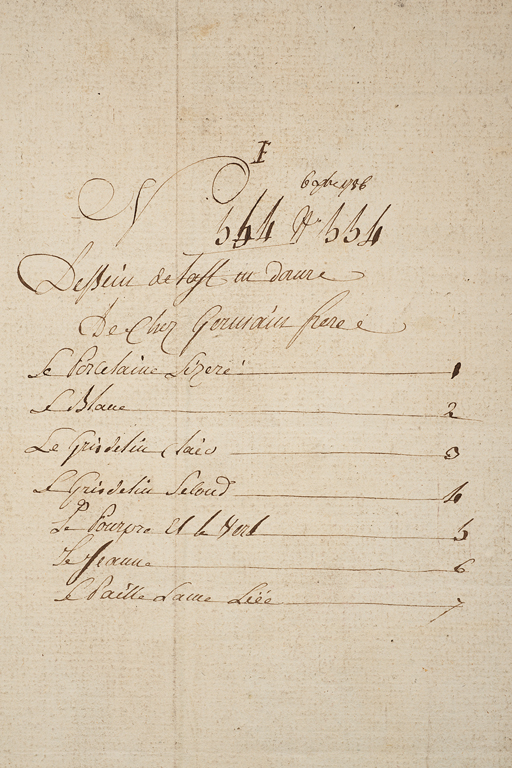 I
6 9bre 1756
N 544 N 554
Dessein de Taff en dorure
De Chez Germain frere
Le Porcelaine Lizeré 1
Le Blanc 2
Le Gris de lin Clair 3
Le Gris de lin Second 4
Le Pourpre Et le Vert 5
Le Jeaune 6
Le Paille Lame Liée 7